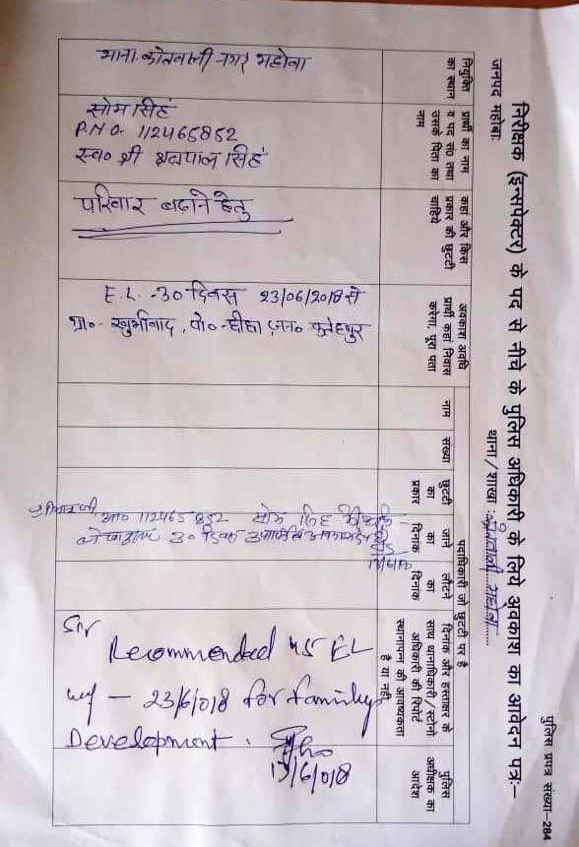 पुलिस प्रपत्र संख्या-284
निरीक्षक (इन्सपेक्टर) के पद से नीचे के पुलिस अधिकारी के लिये अवकाश का आवेदन पत्र:-
जनपद महोबा
थाना/शाखा
नियुक्ति का स्थान
प्रार्थी का नाम व पद सं0 तथा उसके पिता का नाम
कहां और किस प्रकार की छुट्टी चाहिये
अवकाश अवधि प्रार्थी कहां निवास करेगा, पूरा पता
पदाधिकारी जो छुट्टी पर है
नाम
संख्या
छुट्टी का प्रकार
जाने का दिनांक
लौटने का दिनांक
दिनांक और हस्ताक्षर के साथ थानाधिकारी/स्टोनो अधिकारी की रिपोर्ट स्थानापन्न की आवश्यकता है या नहीं
पुलिस अधीक्षक का आदेश
थाना कोतवाली नगर महोबा
सोम सिहं
P.N.O- 112465852
स्व० श्री सिहं
परिवार बढ़ाने हेतु
E.L. -30 दिवस 23/06/2018 से
ग्रा०- पो०- जन० फतेहपुर
112465852 सोम सिंह
30 दिवस
Sir
Recommended 45 EL
wef - 23/6/018 for family
Development.